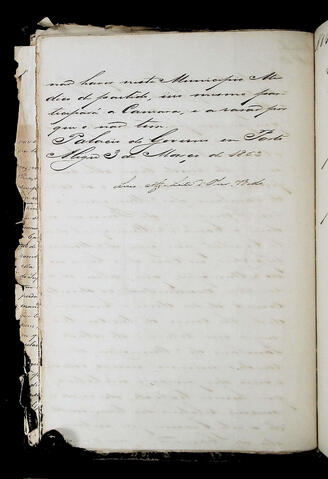 não haver neste Municipio Me-
dico de partido, isso mesmo par-
ticipará a Camara, e a rasão por
que o não tem.
Palacio do Governo em Porto
Alegre 3 de Março de